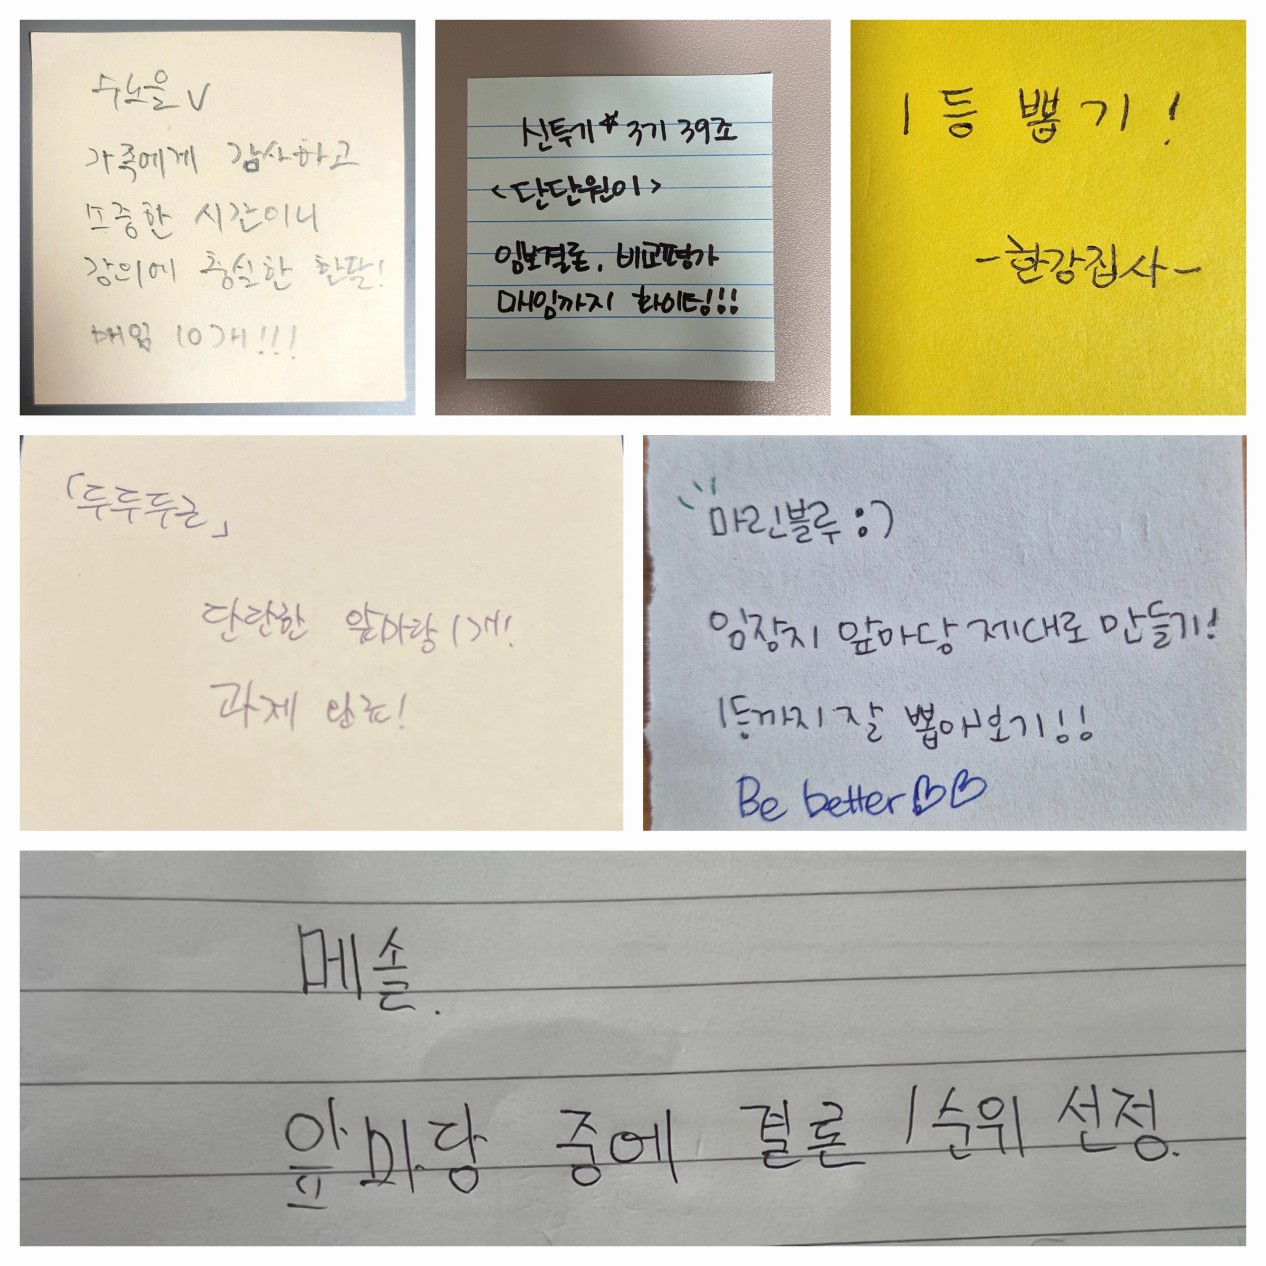 수노을 V
가족에게 감사하고
소중한 시간이니
강의에 충실한 한달!
매임 10개!!!
신투기* 3기 39조
<단단원이>
임보결론, 비교평가
매임까지 화이팅!!!
1등 뽑기!
-한강집사-
「두두두근」
단란한 앞마당 1개!
과제 완료!
마린블루 :)
임장지 앞마당 제대로 만들기!
1등까지 잘 뽑아보기!!
Be better♡♡
메솔.
앞마당 중에 결론 1순위 선정.